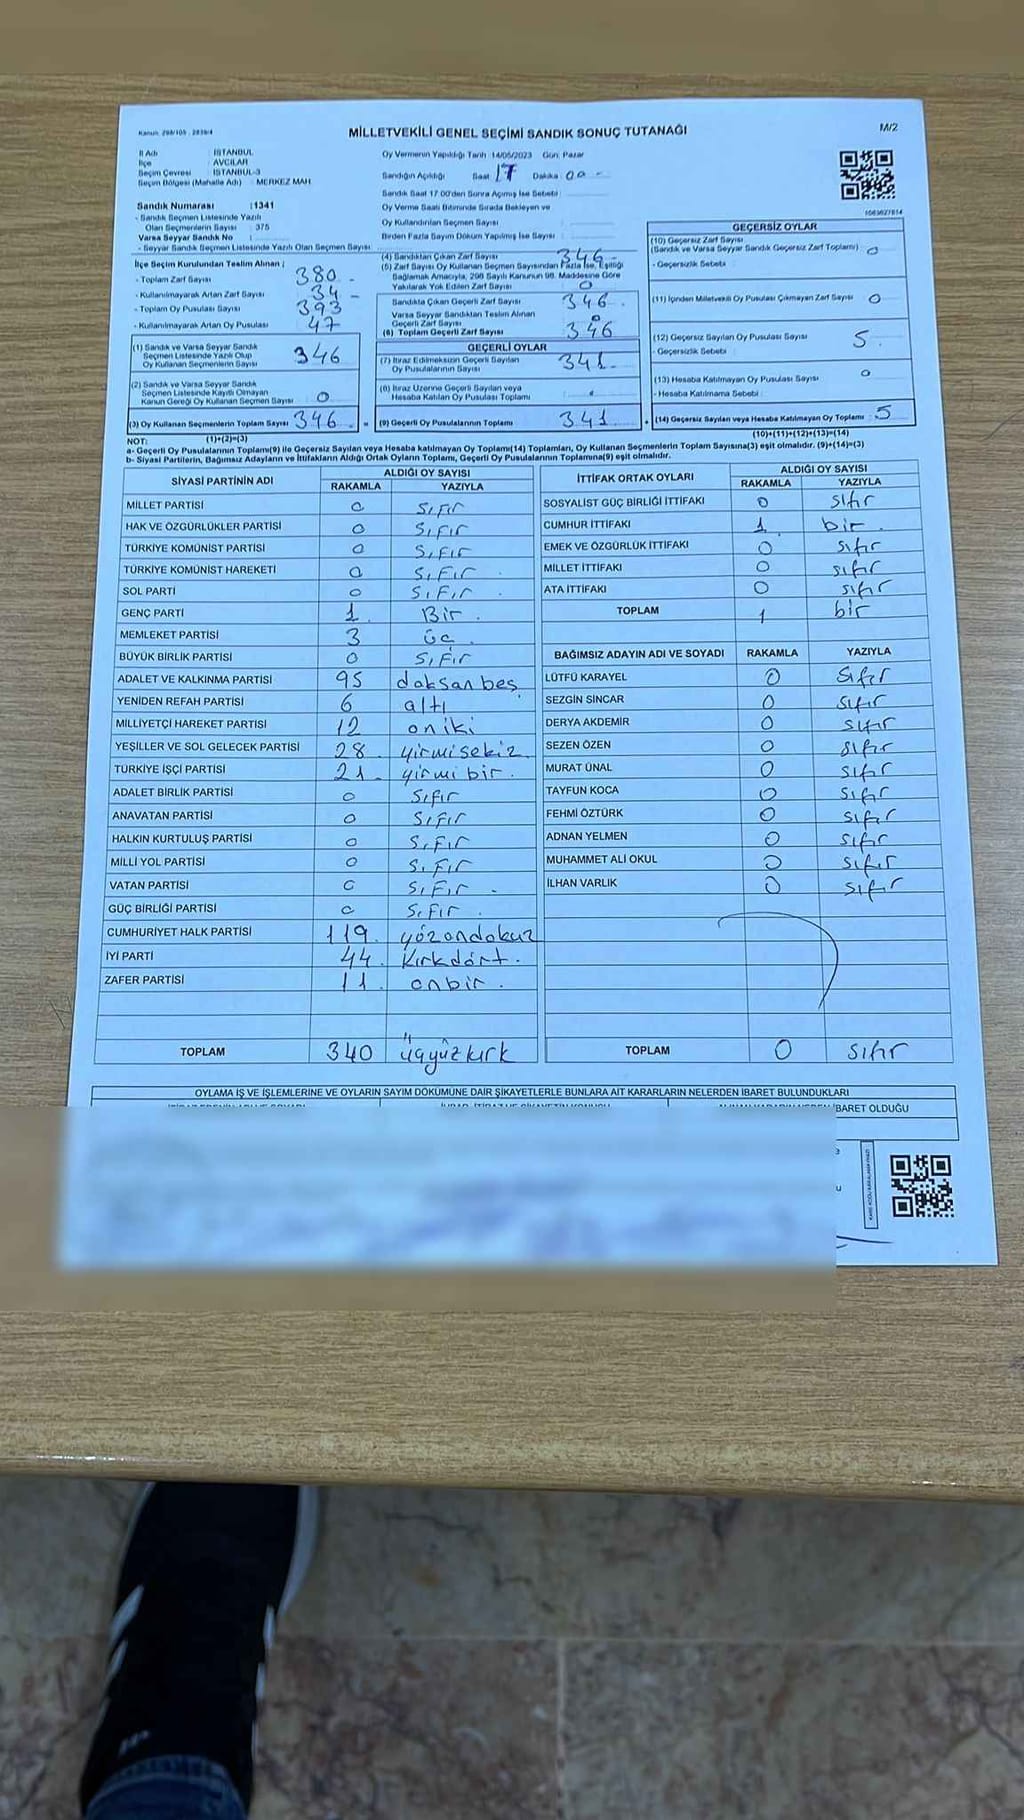 Kanun: 298/105 - 2839/4
MİLLETVEKİLİ GENEL SEÇİMİ SANDIK SONUÇ TUTANAĞI
M/2
İl Adı : İSTANBUL
İlçe : AVCILAR
Seçim Çevresi : İSTANBUL-3
Seçim Bölgesi (Mahalle Adı) : MERKEZ MAH
Sandık Numarası : 1341
- Sandık Seçmen Listesinde Yazılı
Olan Seçmenlerin Sayısı : 375
Varsa Seyyar Sandık No :
- Seyyar Sandık Seçmen Listesinde Yazılı Olan Seçmen Sayısı:
Oy Vermenin Yapıldığı Tarih :14/05/2023 Gün: Pazar
Sandığın Açıldığı Saat 17 Dakika 00 -
Sandık Saat 17.00'den Sonra Açımış İse Sebebi:
Oy Verme Saati Bitiminde Sırada Bekleyen ve
Oy Kullandırılan Seçmen Sayısı :
Birden Fazla Sayım Döküm Yapılmış İse Sayısı :
1563627814
İlçe Seçim Kurulundan Teslim Alınan ;
- Toplam Zarf Sayısı : 380 -
- Kullanılmayarak Artan Zarf Sayısı : 34 -
- Toplam Oy Pusulası Sayısı : 393
- Kullanılmayarak Artan Oy Pusulası : 47
(1) Sandık ve Varsa Seyyar Sandık
Seçmen Listesinde Yazılı Olup
Oy Kullanan Seçmenlerin Sayısı : 346
(2) Sandık ve Varsa Seyyar Sandık
Seçmen Listesinde Kayıtlı Olmayan
Kanun Gereği Oy Kullanan Seçmen Sayısı : 0
(3) Oy Kullanan Seçmenlerin Toplam Sayısı : 346
(4) Sandıktan Çıkan Zarf Sayısı : 346 -
(5) Zarf Sayısı Oy Kullanan Seçmen Sayısından Fazla İse, Eşitliği
Sağlamak Amacıyla, 298 Sayılı Kanunun 98. Maddesine Göre
Yakılarak Yok Edilen Zarf Sayısı : 0
Sandıkta Çıkan Geçerli Zarf Sayısı : 346 -
Varsa Seyyar Sandıktan Teslim Alınan
Geçerli Zarf Sayısı : 0
(6) Toplam Geçerli Zarf Sayısı : 346
GEÇERLİ OYLAR
(7) İtiraz Edilmeksizin Geçerli Sayılan
Oy Pusulalarının Sayısı : 341
(8) İtiraz Üzerine Geçerli Sayılan veya
Hesaba Katılan Oy Pusulası Toplamı :
(9) Geçerli Oy Pusulalarının Toplamı : 341
GEÇERSİZ OYLAR
(10) Geçersiz Zarf Sayısı
(Sandık ve Varsa Seyyar Sandık Geçersiz Zarf Toplamı) : 0
- Geçersizlik Sebebi :
(11) İçinden Milletvekili Oy Pusulası Çıkmayan Zarf Sayısı : 0
(12) Geçersiz Sayılan Oy Pusulası Sayısı : 5
- Geçersizlik Sebebi :
(13) Hesaba Katılmayan Oy Pusulası Sayısı : 0
- Hesaba Katılmama Sebebi :
(14) Geçersiz Sayılan veya Hesaba Katılmayan Oy Toplamı : 5
NOT: (1)+(2)=(3) (10)+(11)+(12)+(13)=(14)
a- Geçerli Oy Pusulalarının Toplamı(9) ile Geçersiz Sayılan veya Hesaba katılmayan Oy Toplamı(14) Toplamları, Oy Kullanan Seçmenlerin Toplam Sayısına(3) eşit olmalıdır. (9)+(14)=(3)
b- Siyasi Partilerin, Bağımsız Adayların ve İttifakların Aldığı Ortak Oyların Toplamı, Geçerli Oy Pusulalarının Toplamına(9) eşit olmalıdır.
SİYASİ PARTİNİN ADI ALDIĞI OY SAYISI
RAKAMLA YAZIYLA
MİLLET PARTİSİ 0 SıFır
HAK VE ÖZGÜRLÜKLER PARTİSİ 0 SıFır
TÜRKİYE KOMÜNİST PARTİSİ 0 SıFır
TÜRKİYE KOMÜNİST HAREKETİ 0 SıFır
SOL PARTİ 0 SıFır
GENÇ PARTİ 1 Bir
MEMLEKET PARTİSİ 3 üç
BÜYÜK BİRLİK PARTİSİ 0 SıFır
ADALET VE KALKINMA PARTİSİ 95 doksan beş
YENİDEN REFAH PARTİSİ 6 altı
MİLLİYETÇİ HAREKET PARTİSİ 12 oniki
YEŞİLLER VE SOL GELECEK PARTİSİ 28 yirmisekiz
TÜRKİYE İŞÇİ PARTİSİ 21 yirmi bir
ADALET BİRLİK PARTİSİ 0 Sıfır
ANAVATAN PARTİSİ 0 SıFır
HALKIN KURTULUŞ PARTİSİ 0 SıFır
MİLLİ YOL PARTİSİ 0 SıFır
VATAN PARTİSİ 0 SıFır
GÜÇ BİRLİĞİ PARTİSİ 0 SıFır
CUMHURİYET HALK PARTİSİ 119 yüzondokuz
İYİ PARTİ 44 Kırkdört
ZAFER PARTİSİ 11 onbir
TOPLAM 340 üçyüzkırk
İTTİFAK ORTAK OYLARI ALDIĞI OY SAYISI
RAKAMLA YAZIYLA
SOSYALİST GÜÇ BİRLİĞİ İTTİFAKI 0 sıfır
CUMHUR İTTİFAKI 1 bir
EMEK VE ÖZGÜRLÜK İTTİFAKI 0 sıfır
MİLLET İTTİFAKI 0 sıfır
ATA İTTİFAKI 0 sıfır
TOPLAM 1 bir
BAĞIMSIZ ADAYIN ADI VE SOYADI RAKAMLA YAZIYLA
LÜTFÜ KARAYEL 0 sıfır
SEZGİN SİNCAR 0 sıfır
DERYA AKDEMİR 0 sıfır
SEZEN ÖZEN 0 sıfır
MURAT ÜNAL 0 sıfır
TAYFUN KOCA 0 sıfır
FEHMİ ÖZTÜRK 0 sıfır
ADNAN YELMEN 0 sıfır
MUHAMMET ALİ OKUL 0 sıfır
İLHAN VARLIK 0 sıfır
TOPLAM 0 sıfır
OYLAMA İŞ VE İŞLEMLERİNE VE OYLARIN SAYIM DÖKÜMÜNE DAİR ŞİKAYETLERLE BUNLARA AİT KARARLARIN NELERDEN İBARET BULUNDUKLARI
İBARET OLDUĞU